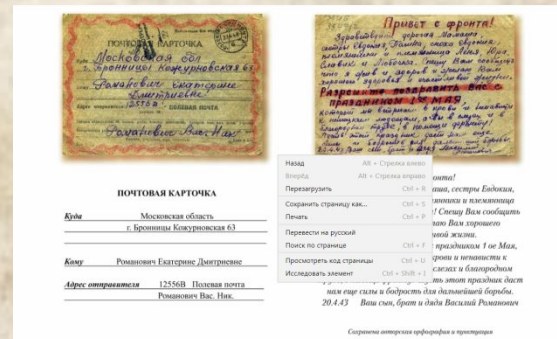 ПОЧТОВАЯ КАРТОЧКА
Куда Московская обл
г. Бронницы Кожурновская 63
Романович Екатерине
Дмитриевне
12556в ПОЛЕВАЯ ПОЧТА
Романович Вас. Ник.
Привет с фронта!
Здравствуйте дорогая Мамаша,
сестры Евдокия,
племянники и племянница Лёня, Юра,
Славик и Любочка. Спешу Вам сообщить
что я жив и здоров и желаю Вам
хорошего здоровья и счастливой
Разрешите поздравить вас с
праздником 1 ое МАЯ
ПОЧТОВАЯ КАРТОЧКА
Куда Московская область
г. Бронницы Кожурновская 63
Кому Романович Екатерине Дмитриевне
Адрес отправителя 12556В Полевая почта
Романович Вас. Ник.
Назад Alt + Стрелка влево
Вперёд Alt + Стрелка вправо
Перезагрузить Ctrl + R
Сохранить страницу как... Ctrl + S
Печать Ctrl + P
Перевести на русский
Поиск по странице Ctrl + F
Просмотреть код страницы Ctrl + U
Исследовать элемент Ctrl + Shift + I
онта!
аша, сестры Евдокия,
янники и племянница
! Спешу Вам сообщить
аю Вам хорошего
ивой жизни.
праздником 1 ое Мая,
рови и ненависти к
слезах и благородном
ть этот праздник даст
нам еще силы и бодрость для дальнейшей борьбы.
20.4.43 Ваш сын, брат и дядя Василий Романович
Сохранена авторская орфография и пунктуация